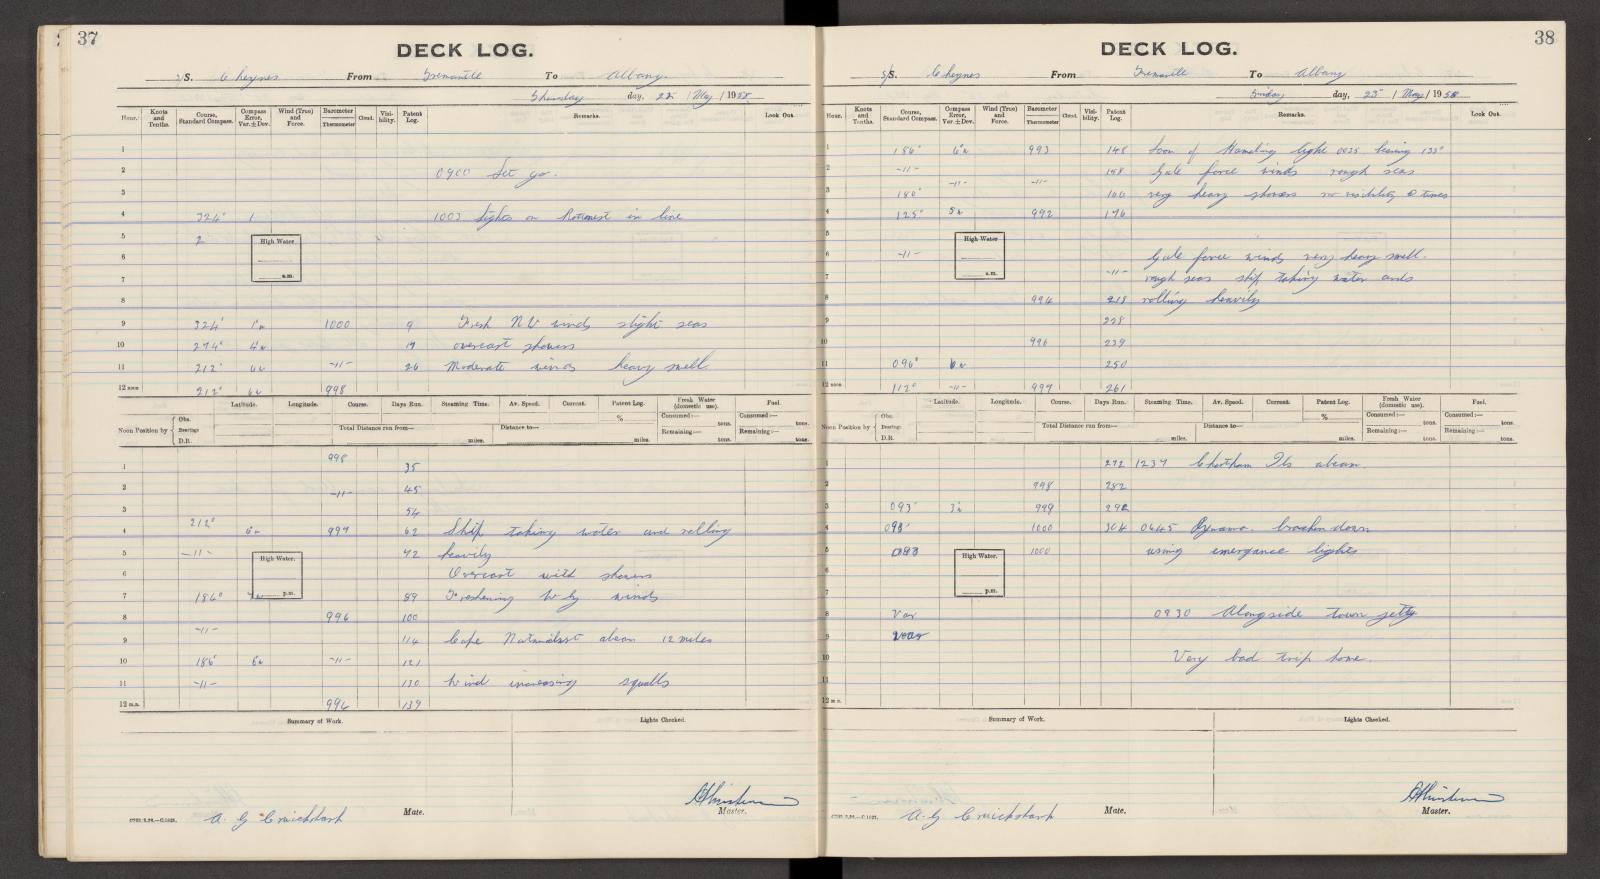 37
DECK LOG.
S/S. Cheynes From Fremantle To Albany.
Thursday day, 22 / May / 1958
Hour. Knots and Tenths. Course, Standard Compass. Compass Error, Var.±Dev. Wind (True) and Force. Barometer Thermometer Cloud. Visibility. Patent Log. Remarks. Look Out.
1
2 0900 Set go.
3
4 324° 1 1003 Lights on Rottnest in line
5 2 High Water
6
7 a.m.
8
9 324° 1000 9 Fresh NW winds slight seas
10 274° 19 overcast showers
11 212° -11- 26 Moderate winds heavy swell
12 noon 212° 998
Latitude. Longitude. Course. Days Run. Steaming Time. Av. Speed. Current. Patent Log. Fresh Water (domestic use). Fuel.
Noon Position by Obs. Bearings D.R. % Consumed:— tons. Consumed:— tons.
Total Distance run from— miles. Distance to— miles. Remaining:— tons. Remaining:— tons.
1 998 35
2 -11- 45
3 54
4 212° 6w 997 62 Ship taking water and rolling
5 -11- High Water. 72 heavily
6 Overcast with showers
7 186° p.m. 89 Freshening W'ly winds
8 996 100
9 -11- 114 Cape Naturaliste abeam 12 miles
10 186° 6w -11- 121
11 -11- 130 Wind increasing squalls
12 m.n. 996 139
Summary of Work. Lights Checked.
A. G Cruickshank Mate. Master.
38
DECK LOG.
S/S. Cheynes From Fremantle To Albany
Friday day, 23 / May / 1958
Hour. Knots and Tenths. Course, Standard Compass. Compass Error, Var.±Dev. Wind (True) and Force. Barometer Thermometer Cloud. Visibility. Patent Log. Remarks. Look Out.
1 186° 6w 993 148 Loom of Hamelin light 0035 bearing 135°
2 -11- 158 Gale force winds rough seas
3 180° -11- -11- 166 very heavy showers no visibility @ times
4 125° 5w 992 176
5 High Water
6 -11- Gale force winds very heavy swell.
7 a.m. -11- rough seas ship taking water and
8 994 218 rolling heavily
9 228
10 996 239
11 096° 6w 250
12 noon 112° -11- 997 261
Latitude. Longitude. Course. Days Run. Steaming Time. Av. Speed. Current. Patent Log. Fresh Water (domestic use). Fuel.
Noon Position by Obs. Bearings D.R. % Consumed:— tons. Consumed:— tons.
Total Distance run from— miles. Distance to— miles. Remaining:— tons. Remaining:— tons.
1 272 1237 Chatham Is abeam.
2 998 282
3 093° 999 292
4 093° 1000 304 0645 Dynamo. brocken down
5 093 High Water. 1000 using emergance lights
6
7 p.m.
8 Var 0930 Alongside town jetty
9 var
10 Very bad trip home.
11
12 m.n.
Summary of Work. Lights Checked.
A. G Cruickshank Mate. Master.